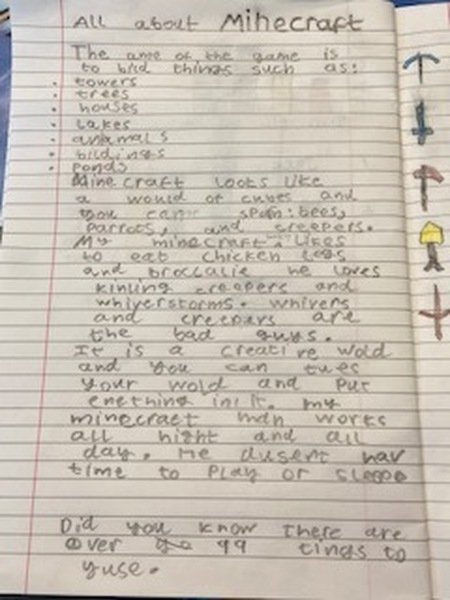 All about Minecraft
The ame of the game is
to bild things such as:
• towers
• trees
• houses
• Lakes
• animals
• bildings
• ponds
Minecraft looks like
a would of cubes and
you can spon: bees,
parrots, and creepers.
My minecraft likes
to eat chicken legs
and broccalie he loves
killing creepers and
whiverstorms. whivers
and creepers are
the bad guys.
It is a creative wold
and you can
your wold and put
enething in it. my
minecraft man works
all hight and all
day. He dusent hav
time to play or sleepe
Did you know there are
over 99 tings to
yuse.